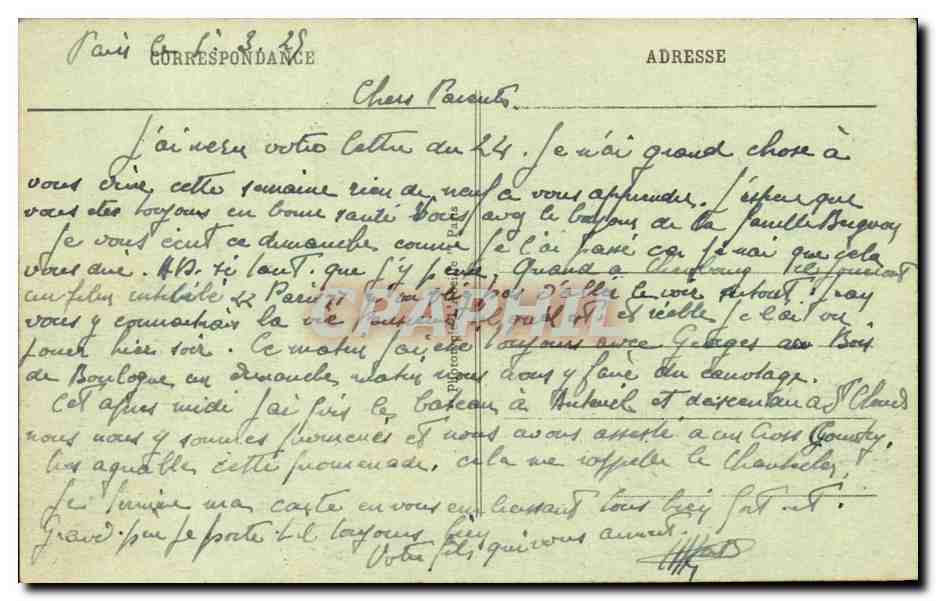 Paris le 1. 3. 25
CORRESPONDANCE
ADRESSE
Chers Parents
J'ai reçu votre lettre du 24. Je n'ai grand chose à
vous dire cette semaine rien de neuf a vous apprendre. J'espere que
vous etes toujours en bonne santé Vous avez le bonjour de la famille
Je vous écrit ce dimanche comme je l'ai passé car je n'ai que cela
vous dire. si tant que j'y pense, Quand a il joueront
un film intitulé Paris d'aller le voir surtout
vous y connaitrais la vie quel est et reelle je l'ai vu
jouer hier soir. Ce matin j'ai été toujours avec Georges au Bois
de Boulogne un dimanche matin nous nous y faire du canotage.
Cet apres midi j'ai pris le bateau a Auteuil et descendu a St Cloud
nous nous y sommes promenés et nous avons assisté a un Cross Country.
tres agreable cette promenade. cela me rappelle le
Je termine ma carte en vous embrassant tous bien fort et
Grand-pere se porte t-il toujours bien
Votre fils qui vous aiment.
Photomécanique Paris
CPAPHIL